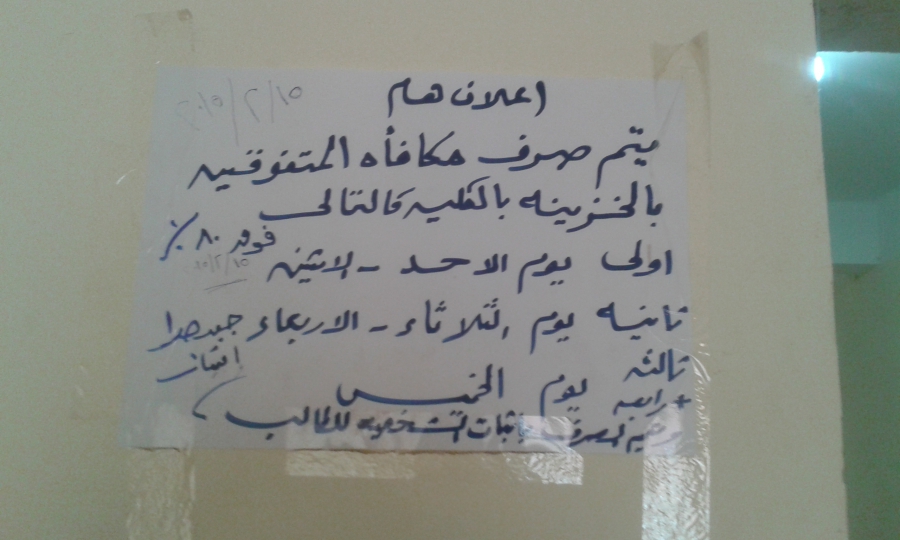 اعلان هام
٢٠١٥/٢/١٥
يتم صرف مكافأه المتفوقين
بالخزينه بالكليه كالتالى
فوق ٨٠٪
اولى يوم الاحد - الاثنين
١٥/٢/١٥
ثانيه يوم الثلاثاء - الاربعاء جيد جدا
امتياز
ثالثه يوم الخميس
+ رابعه
ويتم الصرف باثبات الشخصيه للطالب